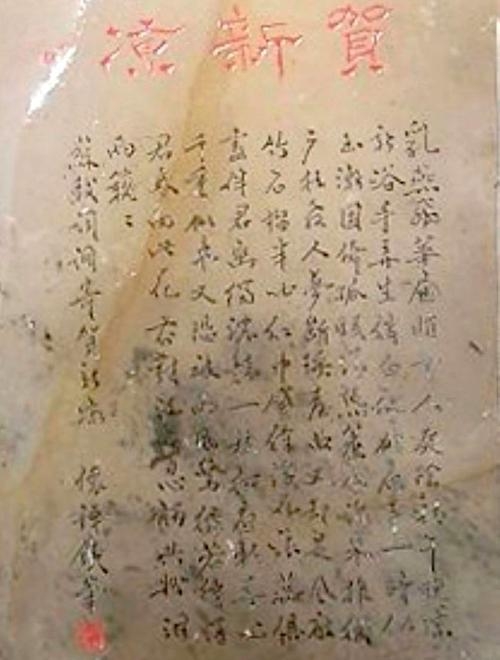 賀新凉
乳燕飛華屋悄無人庭陰轉午晚凉
新浴手弄生綃白團扇扇手一時似
玉漸困倚孤眠清熟簾外誰來推繡
戶枉教人夢斷瑤臺曲又卻是風敲
竹石榴半吐紅巾蹙待浮花浪蕊都
盡伴君幽獨濃艷一枝細看取芳心
千重似束又恐被西風驚綠若待得
君來向此花前對酒不忍觸共粉淚
兩簌
蘇軾詞調寄賀新凉